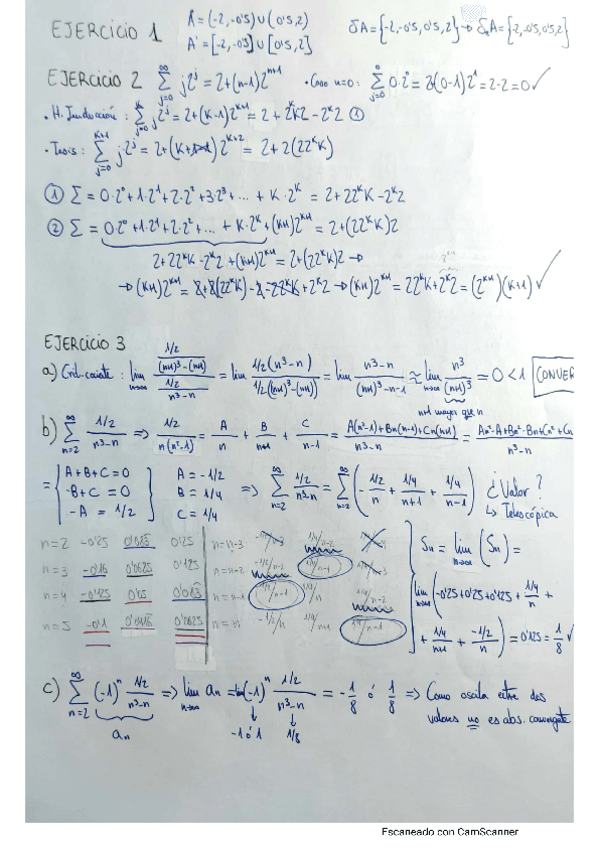 EJERCICIO 1 Å = (-2,-0'5) ∪ (0'5,2) δA = {-2,-0'5,0'5,2} → δₐA = {-2,-0'5,0'5,2}
A' = [-2,-0'5] ∪ [0'5,2]
EJERCICIO 2 ∑_{j=0}^{∞} j2^j = 2+(n-1)2^{n+1} • Caso n=0: ∑_{j=0}^{0} 0·2^0 = 2+(0-1)2^1 = 2-2 = 0 ✓
• H. Inducción: ∑_{j=0}^{K} j2^j = 2+(K-1)2^{K+1} = 2+2^K K2-2^K 2 ①
• Tesis: ∑_{j=0}^{K+1} j·2^j = 2+(K+1-1)2^{K+2} = 2+2(22^K K)
① ∑ = 0·2^0+1·2^1+2·2^2+3·2^3+...+K·2^K = 2+22^K K-2^K 2
② ∑ = 0·2^0+1·2^1+2·2^2+...+K·2^K+(K+1)2^{K+1} = 2+(22^K K)2
2+22^K K-2^K 2+(K+1)2^{K+1} = 2+(22^K K)2 →
→ (K+1)2^{K+1} = 2+2(22^K K)-2-22^K K+2^K 2 → (K+1)2^{K+1} = 22^K K+2^K 2 = (2^{K+1})(K+1) ✓
EJERCICIO 3
a) Crit. cociente: lim_{n→∞} (1/2 / ((n+1)^3-(n+1))) / (1/2 / (n^3-n)) = lim 1/2(n^3-n) / 1/2((n+1)^3-(n+1)) = lim_{n→∞} (n^3-n) / ((n+1)^3-n-1) ≈ lim_{n→∞} n^3/(n+1)^3 = 0<1 CONVER
n+1 mayor que n
b) ∑_{n=2}^{∞} (1/2)/(n^3-n) => (1/2)/(n(n^2-1)) = A/n + B/(n+1) + C/(n-1) = (A(n^2-1)+Bn(n-1)+Cn(n+1))/(n^3-n) = (An^2-A+Bn^2-Bn+Cn^2+Cn)/(n^3-n)
= { A+B+C=0 A=-1/2
-B+C=0 B=1/4 => ∑_{n=2}^{∞} (1/2)/(n^3-n) = ∑_{n=2}^{∞} (-(1/2)/n + (1/4)/(n+1) + (1/4)/(n-1)) ¿Valor?
-A=1/2 C=1/4 ↳ Telescópica
n=2 -0'25 0'083 0'25 n=n-3 -1/2/n-3 1/4/n-2 1/4/n-4 Sn = lim_{n→∞} (Sn) =
n=3 -0'16 0'0625 0'125 n=n-2 -1/2/n-2 1/4/n-1 1/4/n-3
n=4 -0'125 0'05 0'083 n=n-1 -1/2/n-1 1/4/n 1/4/n-2 lim_{n→∞} (-0'25+0'25+0'125+(1/4)/n+
n=5 -0'1 0'0416 0'0625 n=n -1/2/n 1/4/n+1 1/4/n-1 +(1/4)/(n+1)+(-1/2)/n) = 0'125 = 1/8 ✓
c) ∑_{n=2}^{∞} (-1)^n (1/2)/(n^3-n) => lim_{n→∞} an = lim (-1)^n (1/2)/(n^3-n) = -1/8 ó 1/8 => Como oscila entre dos
an -1 ó 1 1/8 valores no es abs. convergente
Escaneado con CamScanner